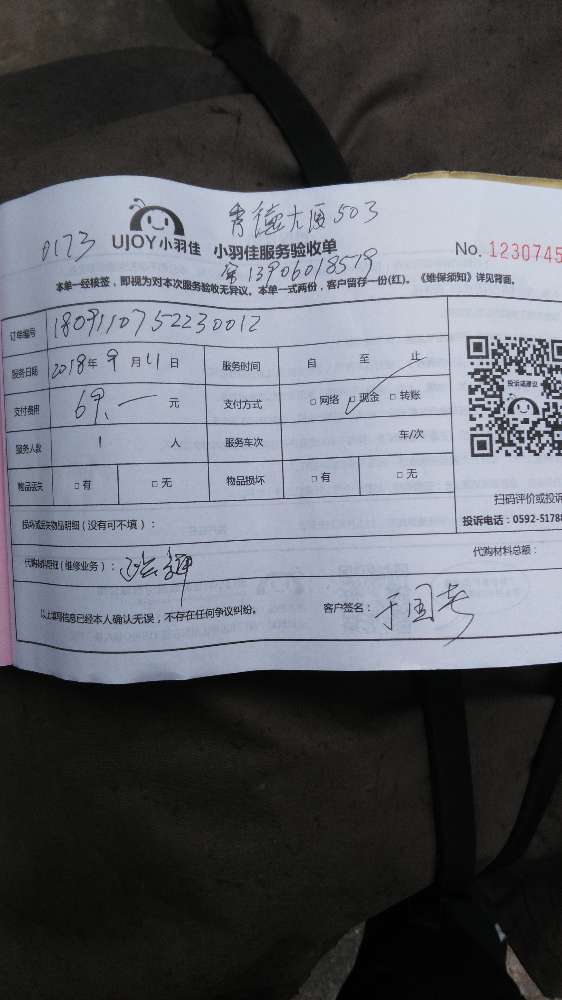 0173
UIJOY小羽佳
大厦503
小羽佳服务验收单
No. 1230745
13906018519
本单一经接签，即视为对本次服务验收无异议。本单一式两份，客户留存一份(红)。《维保须知》详见背面。
订单编号 1809110752230012
服务日期 2018年 9 月 11 日 服务时间 自 至 止
支付费用 69.一 元 支付方式 □网络 □现金 □转账
服务人数 1 人 服务车次 车/次
物品丢失 □有 □无 物品损坏 □有 □无
投诉或建议
扫码评价或投诉
投诉电话：0592-5178
损坏或丢失物品明细（没有可不填）：
代购材料明细（维修业务）：
代购材料总额：
以上填写信息已经本人确认无误，不存在任何争议纠纷。
客户签名：于国